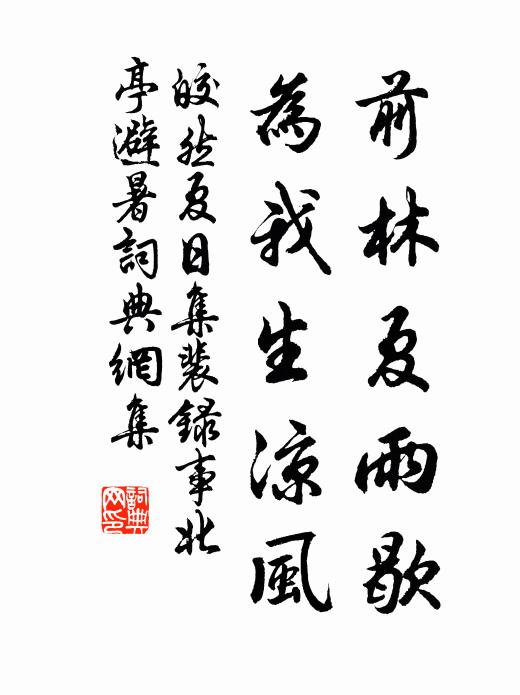 前林夏雨歇
為我生涼風
皎然夏日集裴錄事北
亭避暑詞典網集
詞典
网印